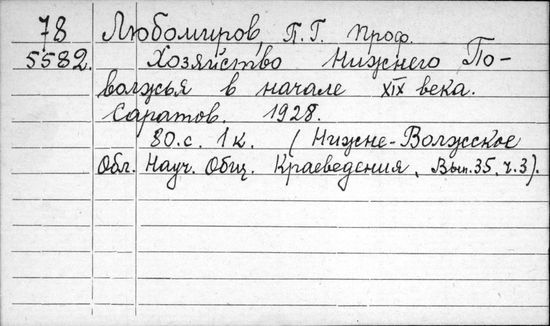 78 Любомиров, П.Г. Проф.
5582. Хозяйство Нижнего По-
волжья в начале XIX века.
Саратов. 1928.
80.с. 1к. (Нижне-Волжское
Обл. Науч. Общ. Краеведения, Вып.35, ч.3).